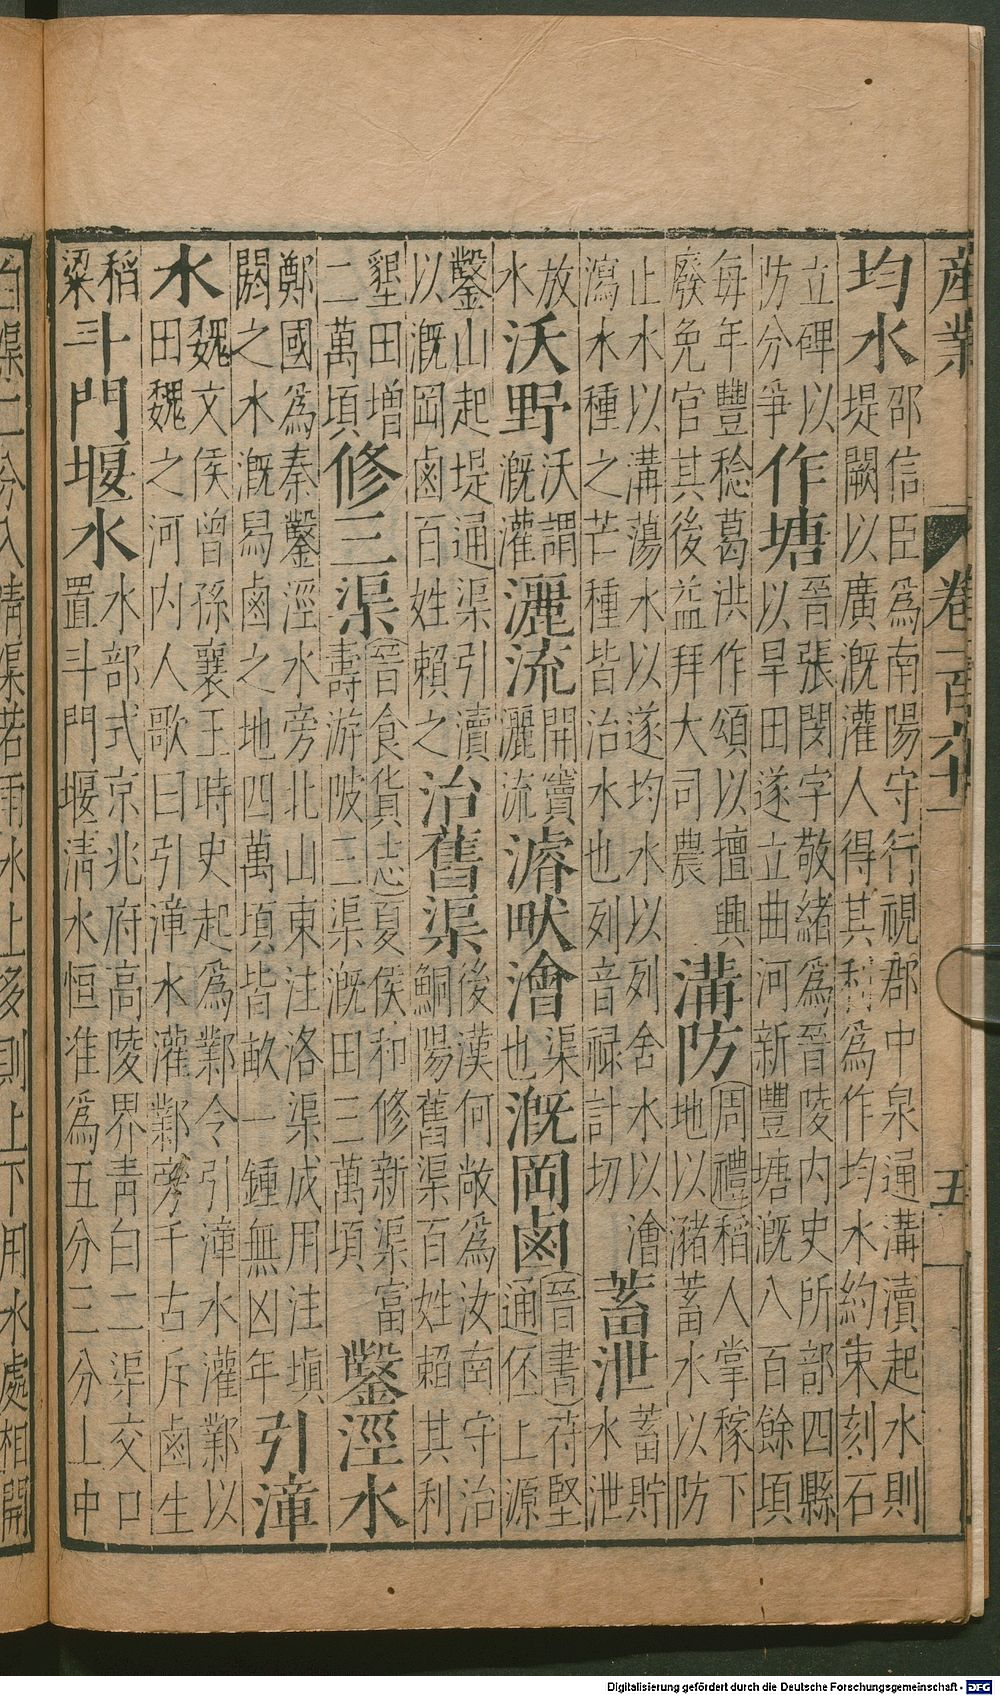 産業　卷一百六十一　五
均水邵信臣爲南陽守行視郡中泉通溝瀆起水則堤闕以廣溉灌人得其利爲作均水約束刻石
立碑以防分爭作塘晉張闓字敬緒爲晉陵内史所部四縣以旱田遂立曲河新豐塘溉八百餘頃
每年豐稔葛洪作頌以擅興廢免官其後益拜大司農溝防周禮稻人掌稼下地以瀦蓄水以防
止水以溝蕩水以遂均水以列舍水以澮瀉水種之芒種皆治水也列音祿計切蓄泄蓄貯水泄
放水沃野沃謂溉灌灑流開竇灑流濬畎澮渠也溉岡鹵晉書苻堅通伾上源
鑿山起堤通渠引瀆以溉岡鹵百姓賴之治舊渠後漢何敞爲汝南守治鮦陽舊渠百姓賴其利
墾田增二萬頃修三渠晉食貨志夏侯和修新渠富壽游陂三渠溉田三萬頃鑿涇水
鄭國爲秦鑿涇水旁北山東注洛渠成用注塡閼之水溉舄鹵之地四萬頃皆畝一鍾無凶年引漳
水魏文侯曾孫襄王時史起爲鄴令引漳水灌鄴以田魏之河内人歌曰引漳水灌鄴旁千古斥鹵生
稻粱斗門堰水水部式京兆府高陵界靑白二渠交口置斗門堰淸水恒准爲五分三分上中
白渠二分入淸渠若雨水上多則上下用水處相開
Digitalisierung gefördert durch die Deutsche Forschungsgemeinschaft - DFG